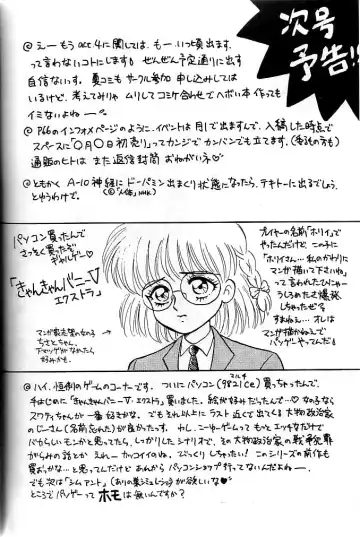 次号
予告!!
◎えー もう act.4に関しては、もー、いつ頃出ます、
って言わないコトにします。ぜんぜん予定通りに出す
自信ないっす。夏コミも サークル参加 申し込みしては
いるけど、考えてみりゃ ムリしてコミケ合わせで ヘボい本作っても
イミないよねー。
◎P66のインフォメページのように、イベントは 月1で出ますんで、入稿した時点で
スペースに「○月○日初売り」ってカンジで カンバンでも立てます。(委託の方も)
通販のヒトは また返信封筒 おねがいネ♡
◎ともかく A-10神経に ドーパミン出まくり状態になったら、テキトーに出るでしょう。
とゆうわけで。
パソコン買ったんで
さっそく買ったぞ
ギャルゲー♡
「きゃんきゃんバニーV
エクストラ」
プレイヤーの名前を「ホリイ」で
やったんだけど、この子に
「ホリイさん… 私のかわりに
マンガ描いて下さいね」
って言われたひにゃー
うしろめたさ爆発
しちゃったぜ?
すまねぇ… オレは
マンガ描かねェで
パソゲーやってんだ!
マンガ家志望の女の子
ちさとちゃん。
◎ハイ、恒例のゲームのコーナーです。 ついにパソコン(98マルチCE) 買っちゃったんで、
手はじめに「きゃんきゃんバニーV・エクストラ」買いました。絵が好みだったんで…♡ 女の子なら
スワティちゃんが 一番 好きかな。でも それ以上に ラスト近くで出てくる 大物政治家
のじーさん(名前忘れた)が良かったっす。わし、こーゆーゲームって もっと エッチなだけで
バカらしいモンかと思ってたら、しっかりしたシナリオで、その大物政治家の戦争犯罪
がらみの話とか えれー カッコイイのね。びっくりしちゃったい! このシリーズの前作も
買おっかなー、と思ってんだけど あんから パソコンショップ 行ってないんだよねー。
でも次は「シムアント」(ありの巣シミュレーション)が欲しいな♡
ところでパソゲーって ホモは無いんですか?